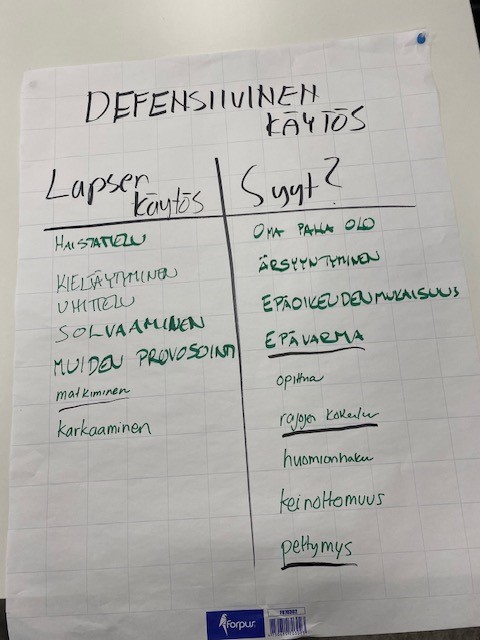 DEFENSIIVINEN
KÄYTÖS
Lapsen
käytös
Syyt?
HAISTATTELU
KIELTÄYTYMINEN
UHITTELU
SOLVAAMINEN
MUIDEN PROVOSOINTI
matkiminen
karkaaminen
OMA PAHA OLO
ÄRSYYNTYMINEN
EPÄOIKEUDENMUKAISUUS
EPÄVARMA
opittua
rajojen kokeilu
huomionhaku
keinottomuus
pettymys
forpus